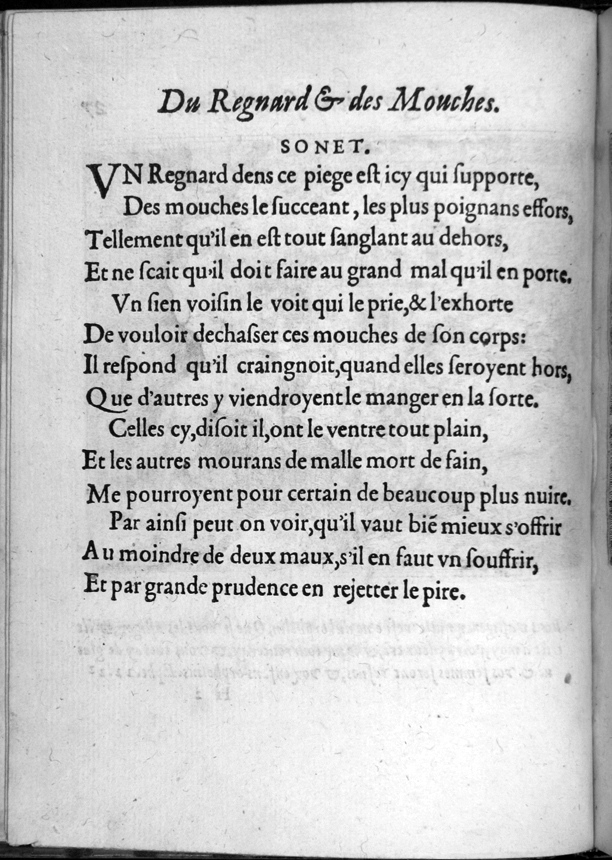 Du Regnard & des Mouches.
SONET.
VN Regnard dens ce piege eſt icy qui ſupporte,
Des mouches le ſucceant, les plus poignans effors,
Tellement qu'il en eſt tout ſanglant au dehors,
Et ne ſcait qu'il doit faire au grand mal qu'il en porte.
Vn ſien voiſin le voit qui le prie,& l'exhorte
De vouloir dechaſser ces mouches de ſon corps:
Il reſpond qu'il craingnoit,quand elles ſeroyent hors,
Que d'autres y viendroyent le manger en la ſorte.
Celles cy,diſoit il,ont le ventre tout plain,
Et les autres mourans de malle mort de fain,
Me pourroyent pour certain de beaucoup plus nuire.
Par ainſi peut on voir,qu'il vaut biẽ mieux s'offrir
Au moindre de deux maux,s'il en faut vn ſouffrir,
Et par grande prudence en rejetter le pire.